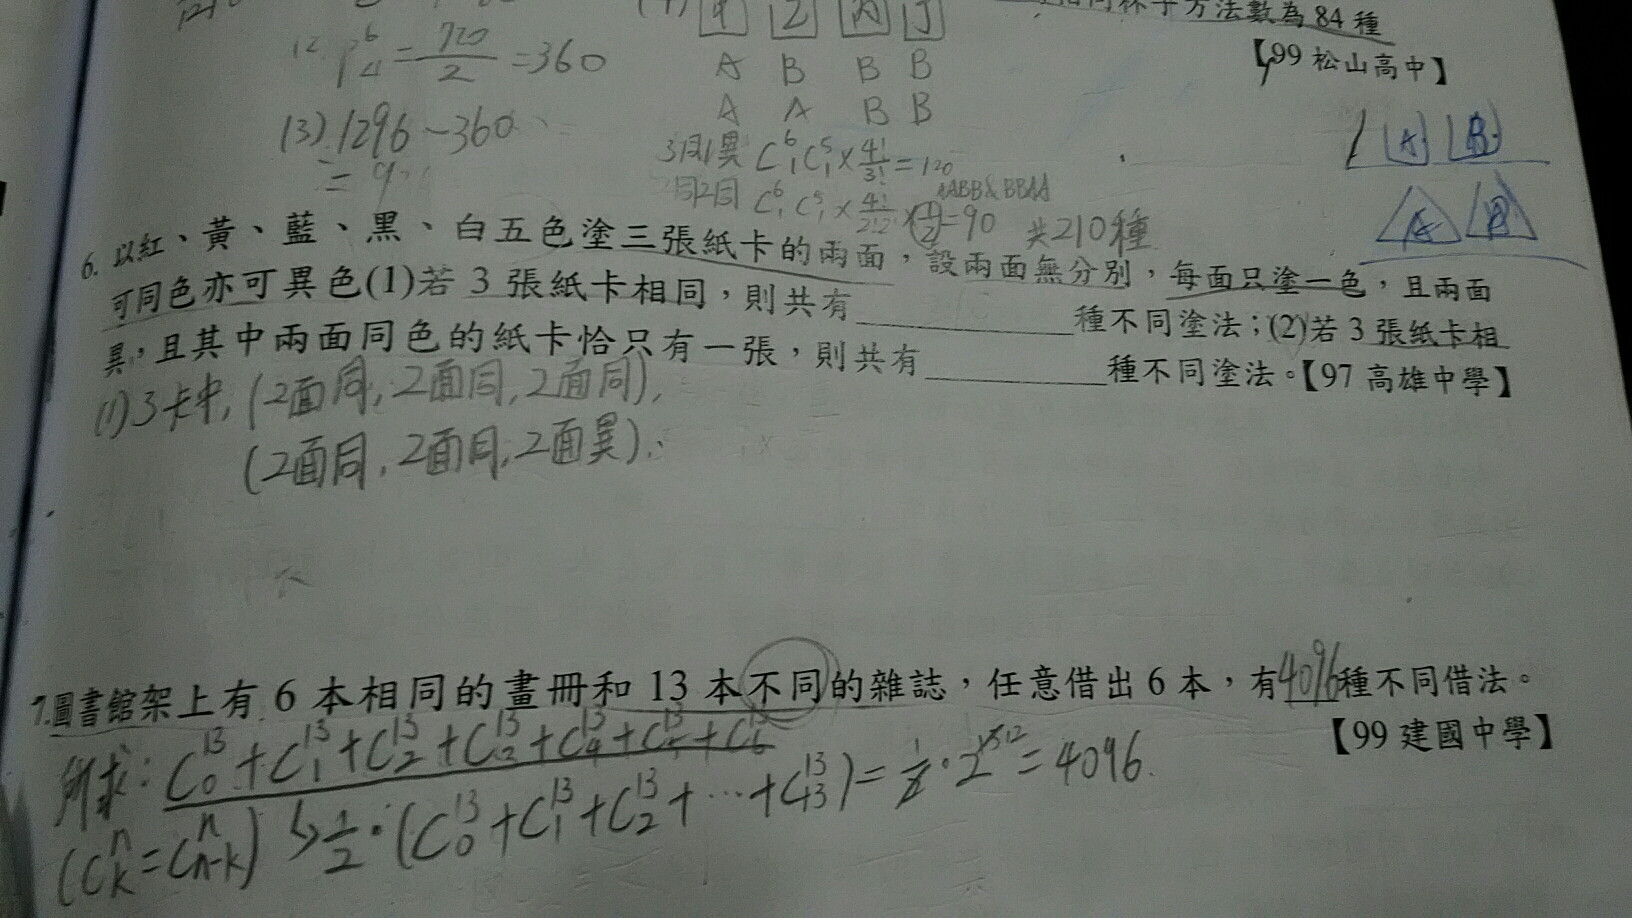 杯子方法數為 84 種
【99 松山高中】
(4) 甲 乙 丙 丁
A B B B
A A B B
P^6_4 = 720/2 = 360
(3) 1296 - 360
= 9
3同1異 C^6_1 C^5_1 × 4!/3! = 120
2同2同 C^6_1 C^5_1 × 4!/2!2! × (1/2) = 90 共210種
AABB & BBAA
A B
A B
6. 以紅、黃、藍、黑、白五色塗三張紙卡的兩面，設兩面無分別，每面只塗一色，且兩面
可同色亦可異色(1)若 3 張紙卡相同，則共有__________種不同塗法；(2)若 3 張紙卡相
異，且其中兩面同色的紙卡恰只有一張，則共有__________種不同塗法。【97 高雄中學】
(1) 3卡中, (2面同, 2面同, 2面同),
(2面同, 2面同, 2面異)、
7. 圖書館架上有 6 本相同的畫冊和 13 本不同的雜誌，任意借出 6 本，有4096種不同借法。
【99 建國中學】
所求: C^13_0 + C^13_1 + C^13_2 + C^13_3 + C^13_4 + C^13_5 + C^13_6
(C^n_k = C^n_n-k) ↳ 1/2 · (C^13_0 + C^13_1 + C^13_2 + ⋯ + C^13_13) = 1/2 · 2^13 12 = 4096.